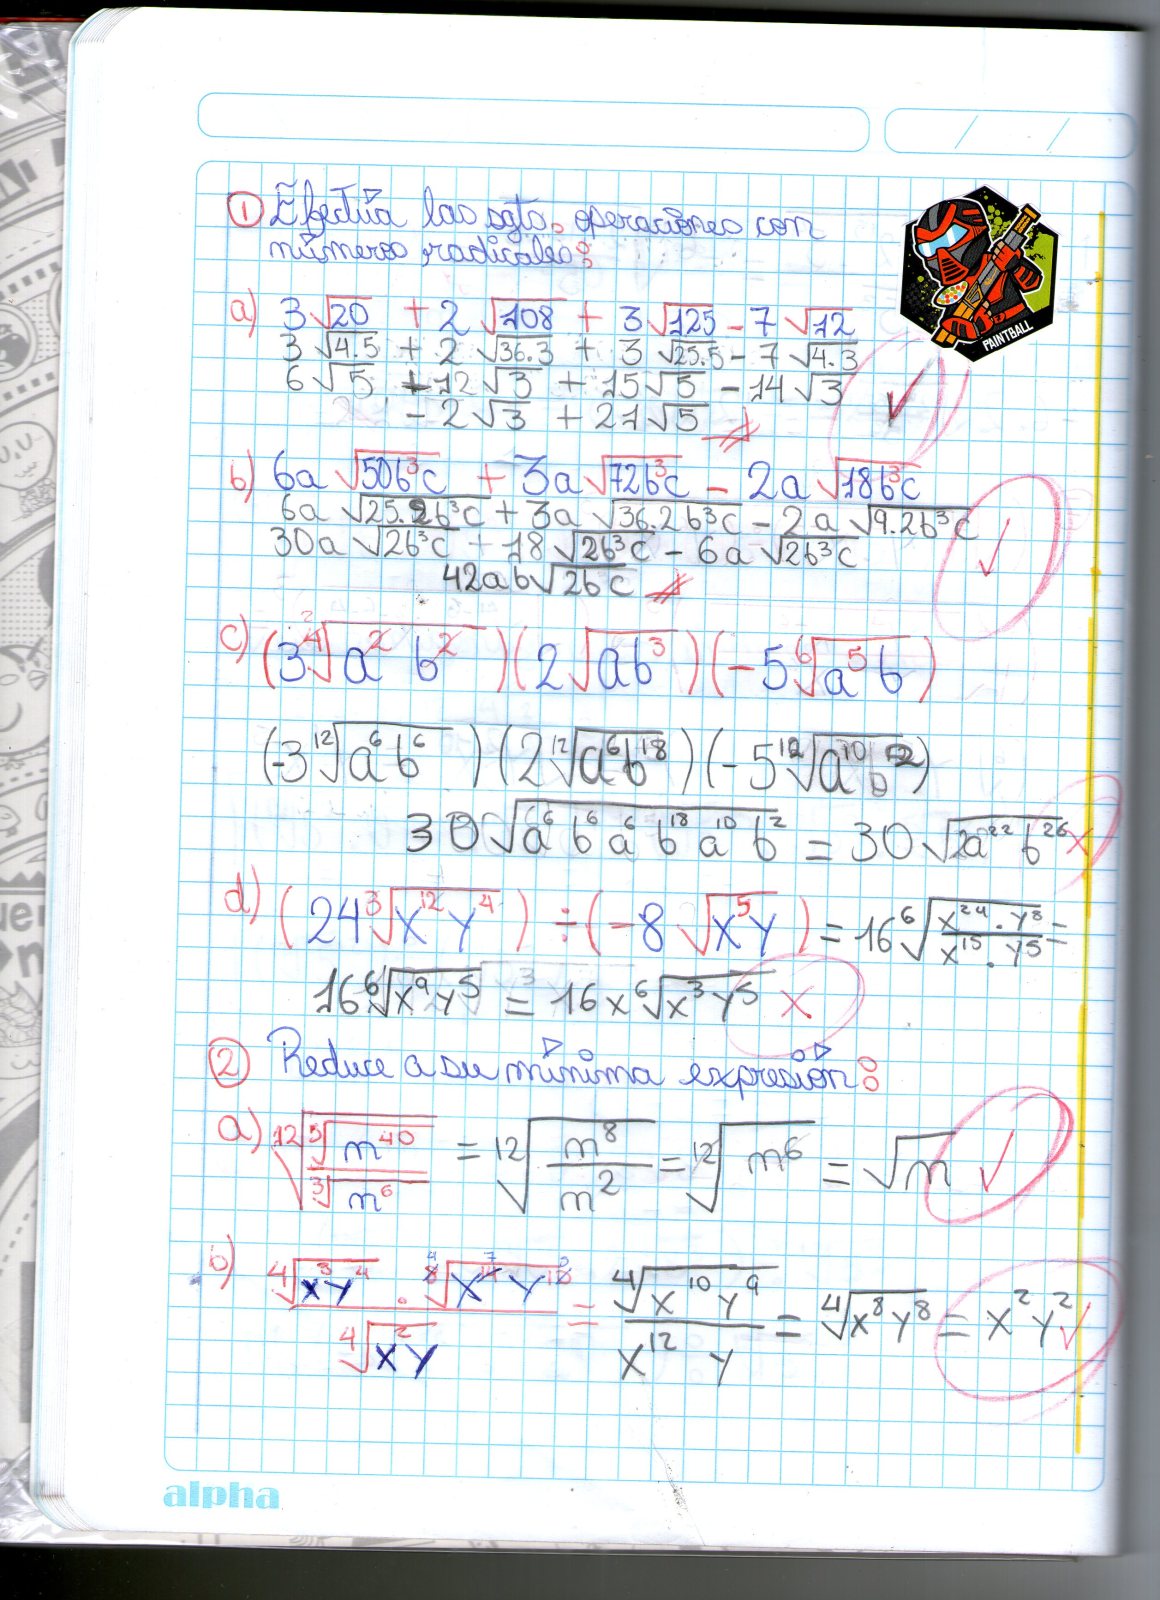 ① Efectúa las sgts. operaciones con
números radicales:
PAINTBALL
a) 3√20 + 2√108 + 3√125 - 7√12
3√4.5 + 2√36.3 + 3√25.5 - 7√4.3
6√5 + 12√3 + 15√5 - 14√3
- 2√3 + 21√5
b) 6a√50b³c + 3a√72b³c - 2a√18b³c
6a√25.2b³c + 3a√36.2b³c - 2a√9.2b³c
30a√2b³c + 18√2b³c - 6a√2b³c
42ab√2bc
c) (3⁴√a²b²)(2√ab³)(-5⁶√a⁵b)
(-3¹²√a⁶b⁶)(2¹²√a⁶b¹⁸)(-5¹²√a¹⁰b²)
30√a⁶b⁶a⁶b¹⁸a¹⁰b² = 30√2a²²b²⁶ x
d) (24³√x¹²y⁴) ÷ (-8√x⁵y) = 16⁶√x²⁴.y⁸/x¹⁵.y⁵ =
16⁶√x⁹y⁵ = 16x⁶√x³y⁵ x
② Reduce a su mínima expresión:
a) ¹²√⁵√m⁴⁰/³√m⁶ = ¹²√m⁸/m² = ¹²√m⁶ = √m
b) ⁴√x³y⁴ . ⁸√x¹⁴y¹⁰/⁴√x²y = ⁴√x¹⁰y⁹/x¹²y = ⁴√x⁸y⁸ = x²y²
alpha